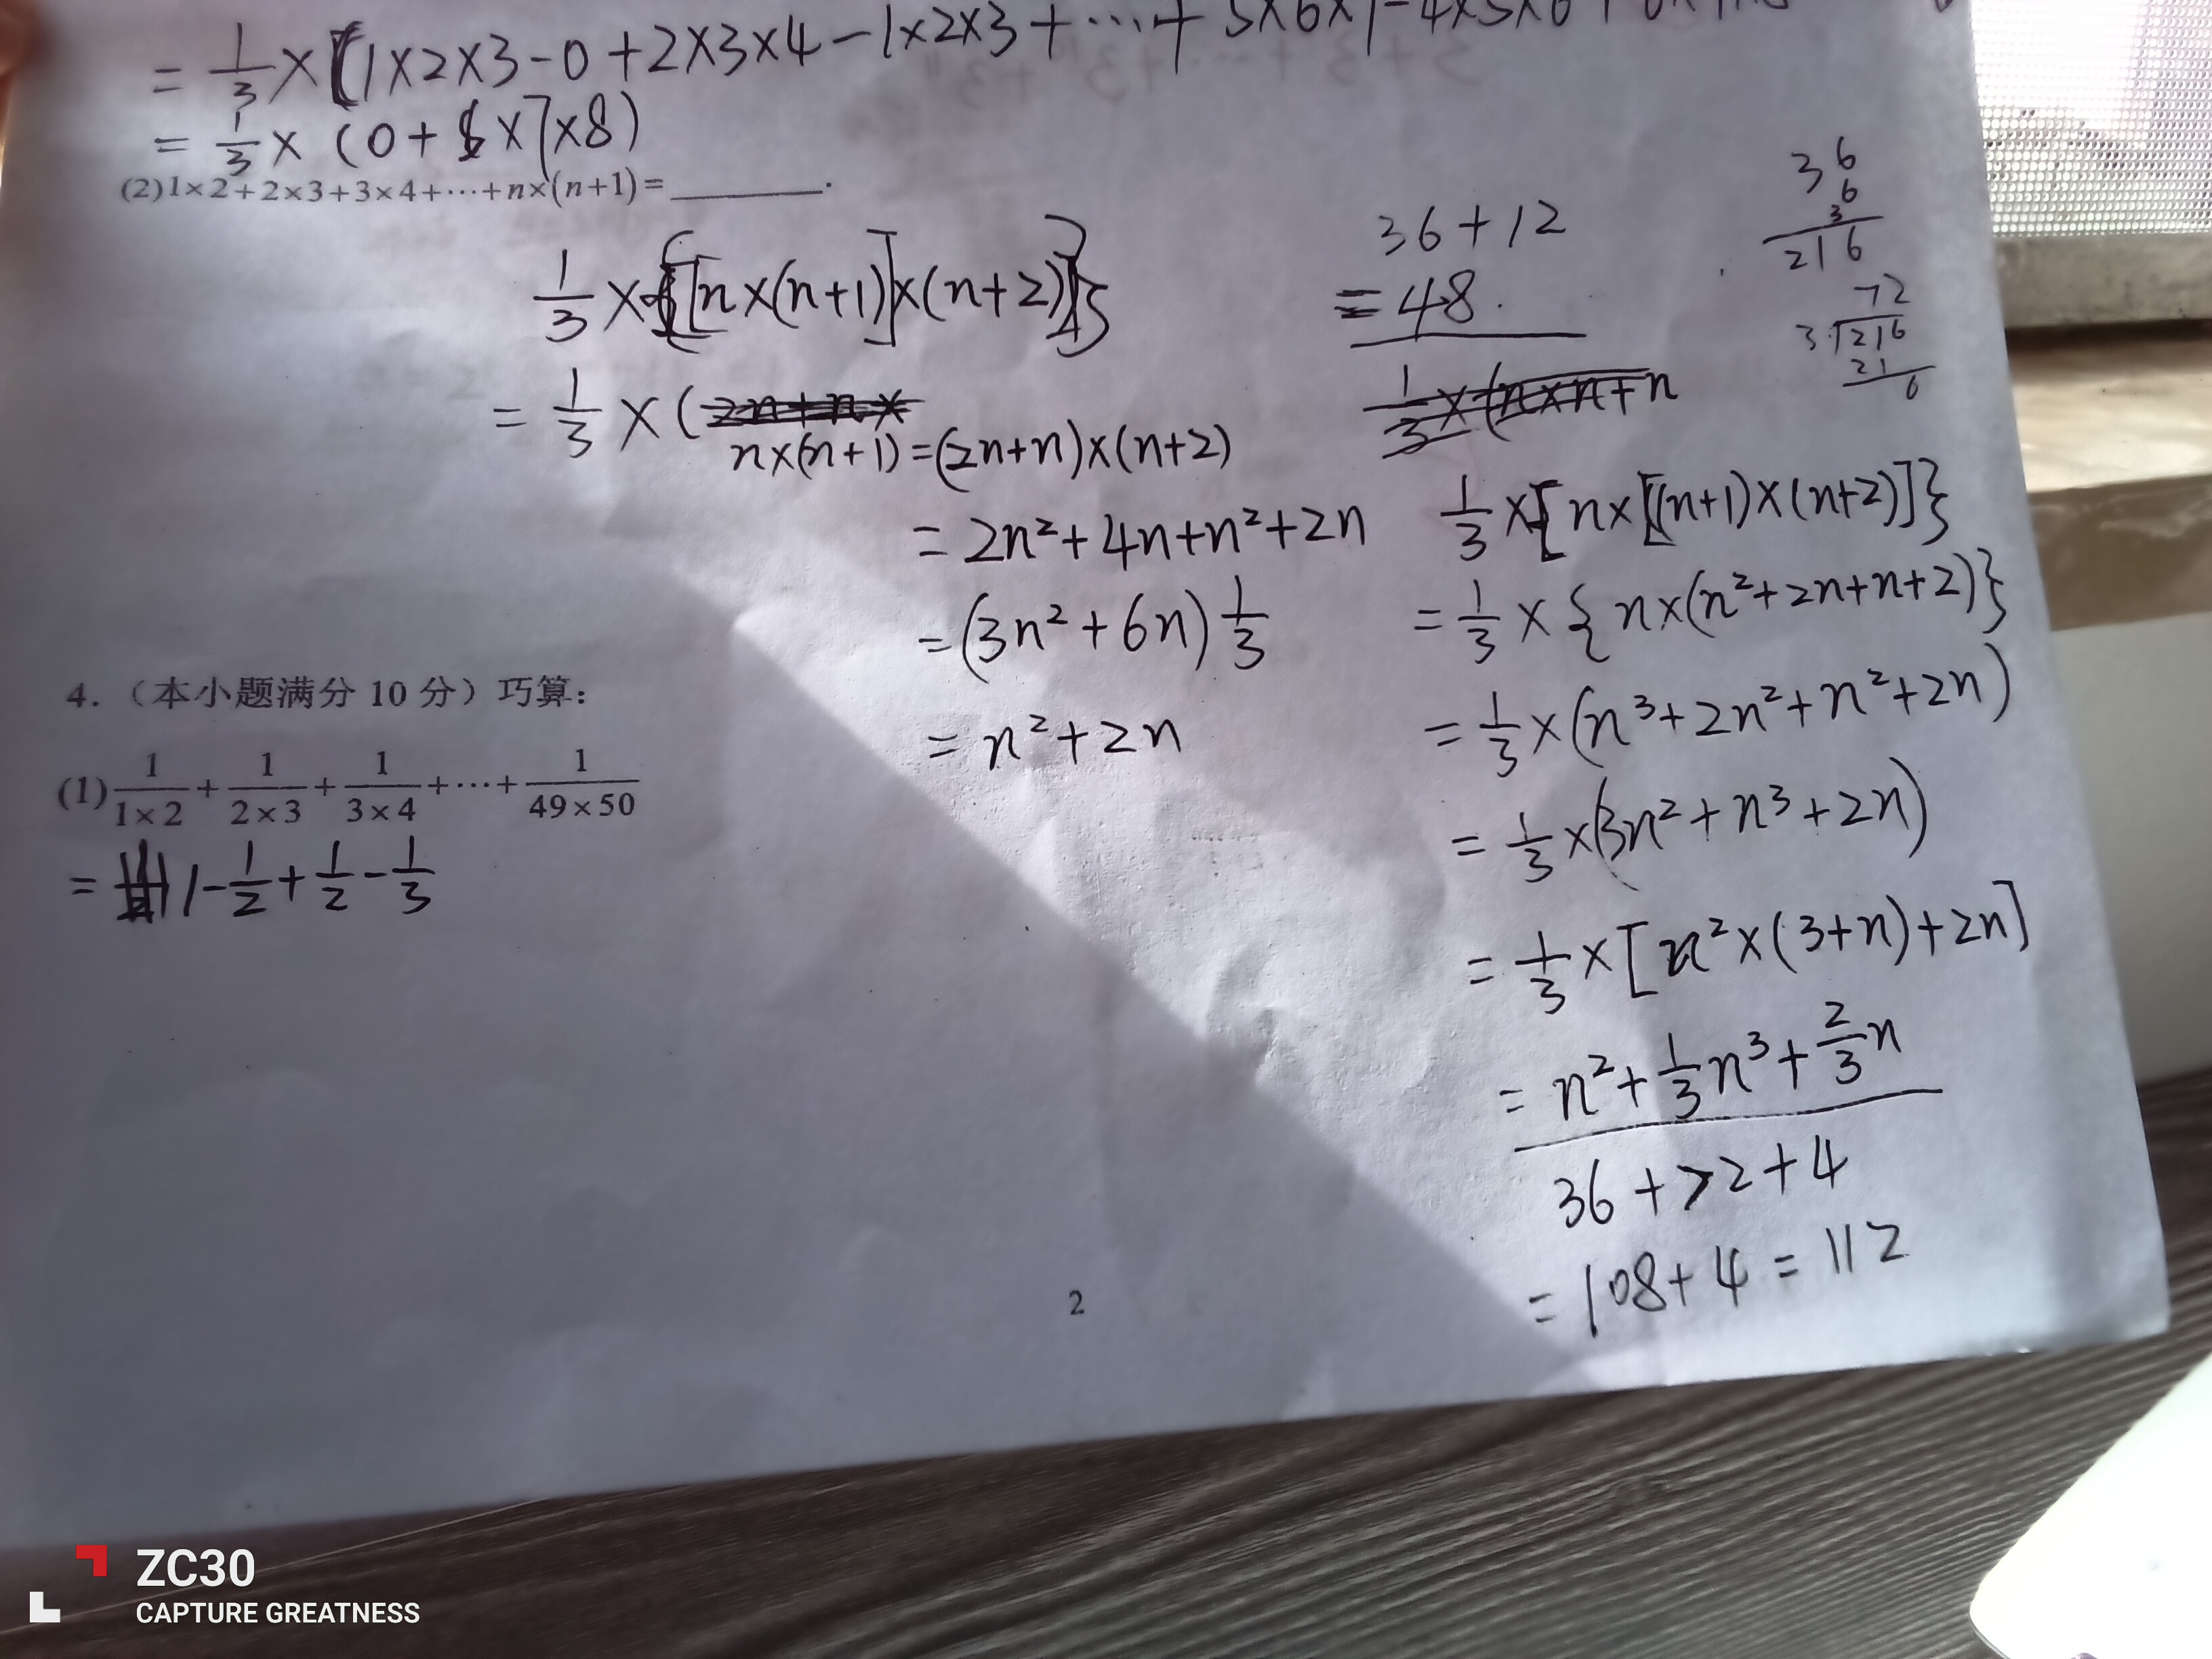 = 1/3 × [1×2×3-0+2×3×4-1×2×3+…+5×6×7-4×5×6+6×7×8
= 1/3 × (0+6×7×8)
(2)1×2+2×3+3×4+…+n×(n+1)=________.
1/3 × {[n×(n+1)]×(n+2)}
= 1/3 × (
n×(n+1)=(2n+n)×(n+2)
= 2n²+4n+n²+2n
=(3n²+6n) 1/3
= n²+2n
36+12
=48.
36
6
3
216
72
3 216
21
6
1/3×(n×n+n
1/3×[n×[(n+1)×(n+2)]}
= 1/3 × { n×(n²+2n+n+2)}
= 1/3 × (n³+2n²+n²+2n)
= 1/3 ×(3n²+n³+2n)
= 1/3 × [n²×(3+n)+2n]
= n²+1/3n³+2/3n
36+72+4
=108+4=112
4.（本小题满分 10 分）巧算：
(1) 1/(1×2) + 1/(2×3) + 1/(3×4) +…+ 1/(49×50)
= 1-1/2+1/2-1/3
2
ZC30
CAPTURE GREATNESS